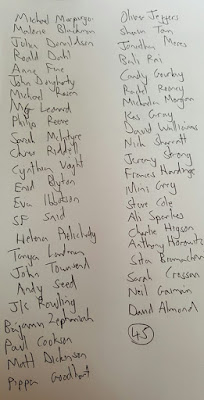 Michael Morpurgo
Malorie Blackman
Julia Donaldson
Roald Dahl
Anne Fine
John Dougherty
Michael Rosen
MG Leonard
Philip Reeve
Sarah McIntyre
Chris Riddell
Cynthia Voight
Enid Blyton
Eva Ibbotson
SF Said
Helena Pielichaty
Tanya Landman
John Townsend
Andy Seed
JK Rowling
Benjamin Zephaniah
Paul Cookson
Matt Dickinson
Pippa Goodhart
Oliver Jeffers
Shaun Tan
Jonathan Meres
Bali Rai
Candy Gourlay
Rachel Rooney
Michaela Morgan
Kes Gray
David Walliams
Nick Sharratt
Jeremy Strong
Frances Hardinge
Mini Grey
Steve Cole
Ali Sparkes
Charlie Higson
Anthony Horowitz
Sita Brahmachari
Sarah Crossan
Neil Gaiman
David Almond
45